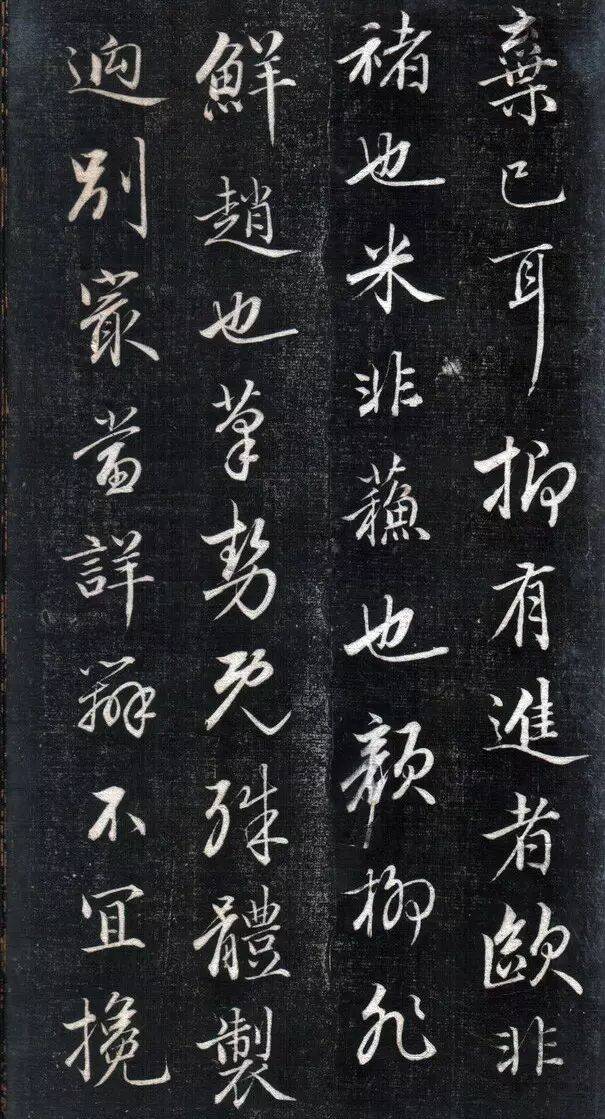 棄已耳抑有進者歐非
褚也米非蘓也顏柳非
鮮趙也筆勢既殊體製
逈別㝡當詳辨不宜攙